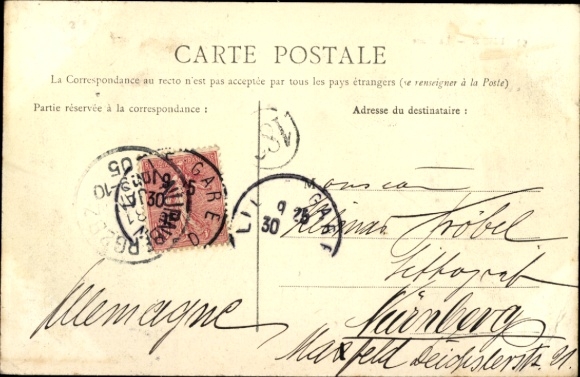 CARTE POSTALE
La Correspondance au recto n'est pas acceptée par tous les pays étrangers (se renseigner à la Poste)
Partie réservée à la correspondance :
Adresse du destinataire :
GARE
LIL
GARE
9 25
30
Monsieur
Fröbel
Lithograf
Allemagne
Nürnberg
Maxfeld
21.